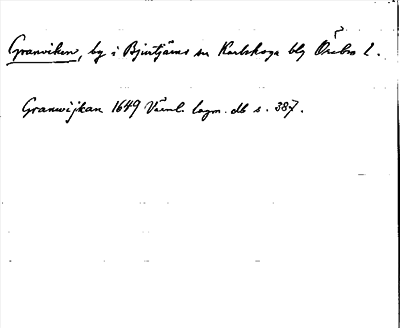 Granviken, by i Bjurtjärns sn Karlskoga bg Örebro l.
Granwijkan 1649 Värml. lagm. db s. 387.